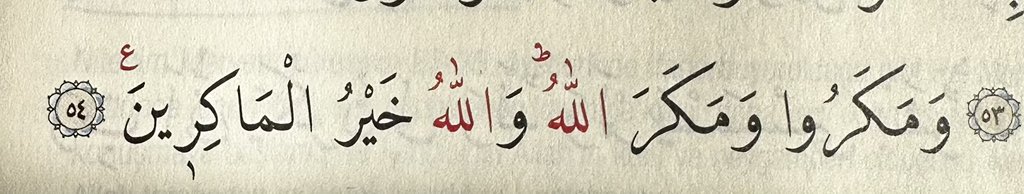 ٥٣ وَمَكَرُوا وَمَكَرَ اللّٰهُ ط وَاللّٰهُ خَيْرُ الْمَاكِرِينَ ع ٥٤